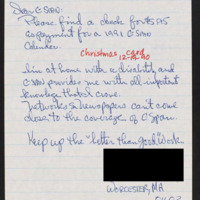 Dear C-SPAN:
Please find a check for $5.95
copayment for a 1991 C-SPAN
Calendar.
Christmas card
12-19-90
I'm at home with a disability and
CSPAN provides me with all-important
knowledge that I crave.
Networks & newspapers can't come
close to the coverage of C-Span.
Keep up the "better than good" work.
WORCESTER, MA